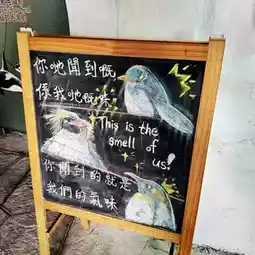 你哋聞到嘅
係我哋嘅味
This is the
smell of
us!
你聞到的就是
我們的氣味